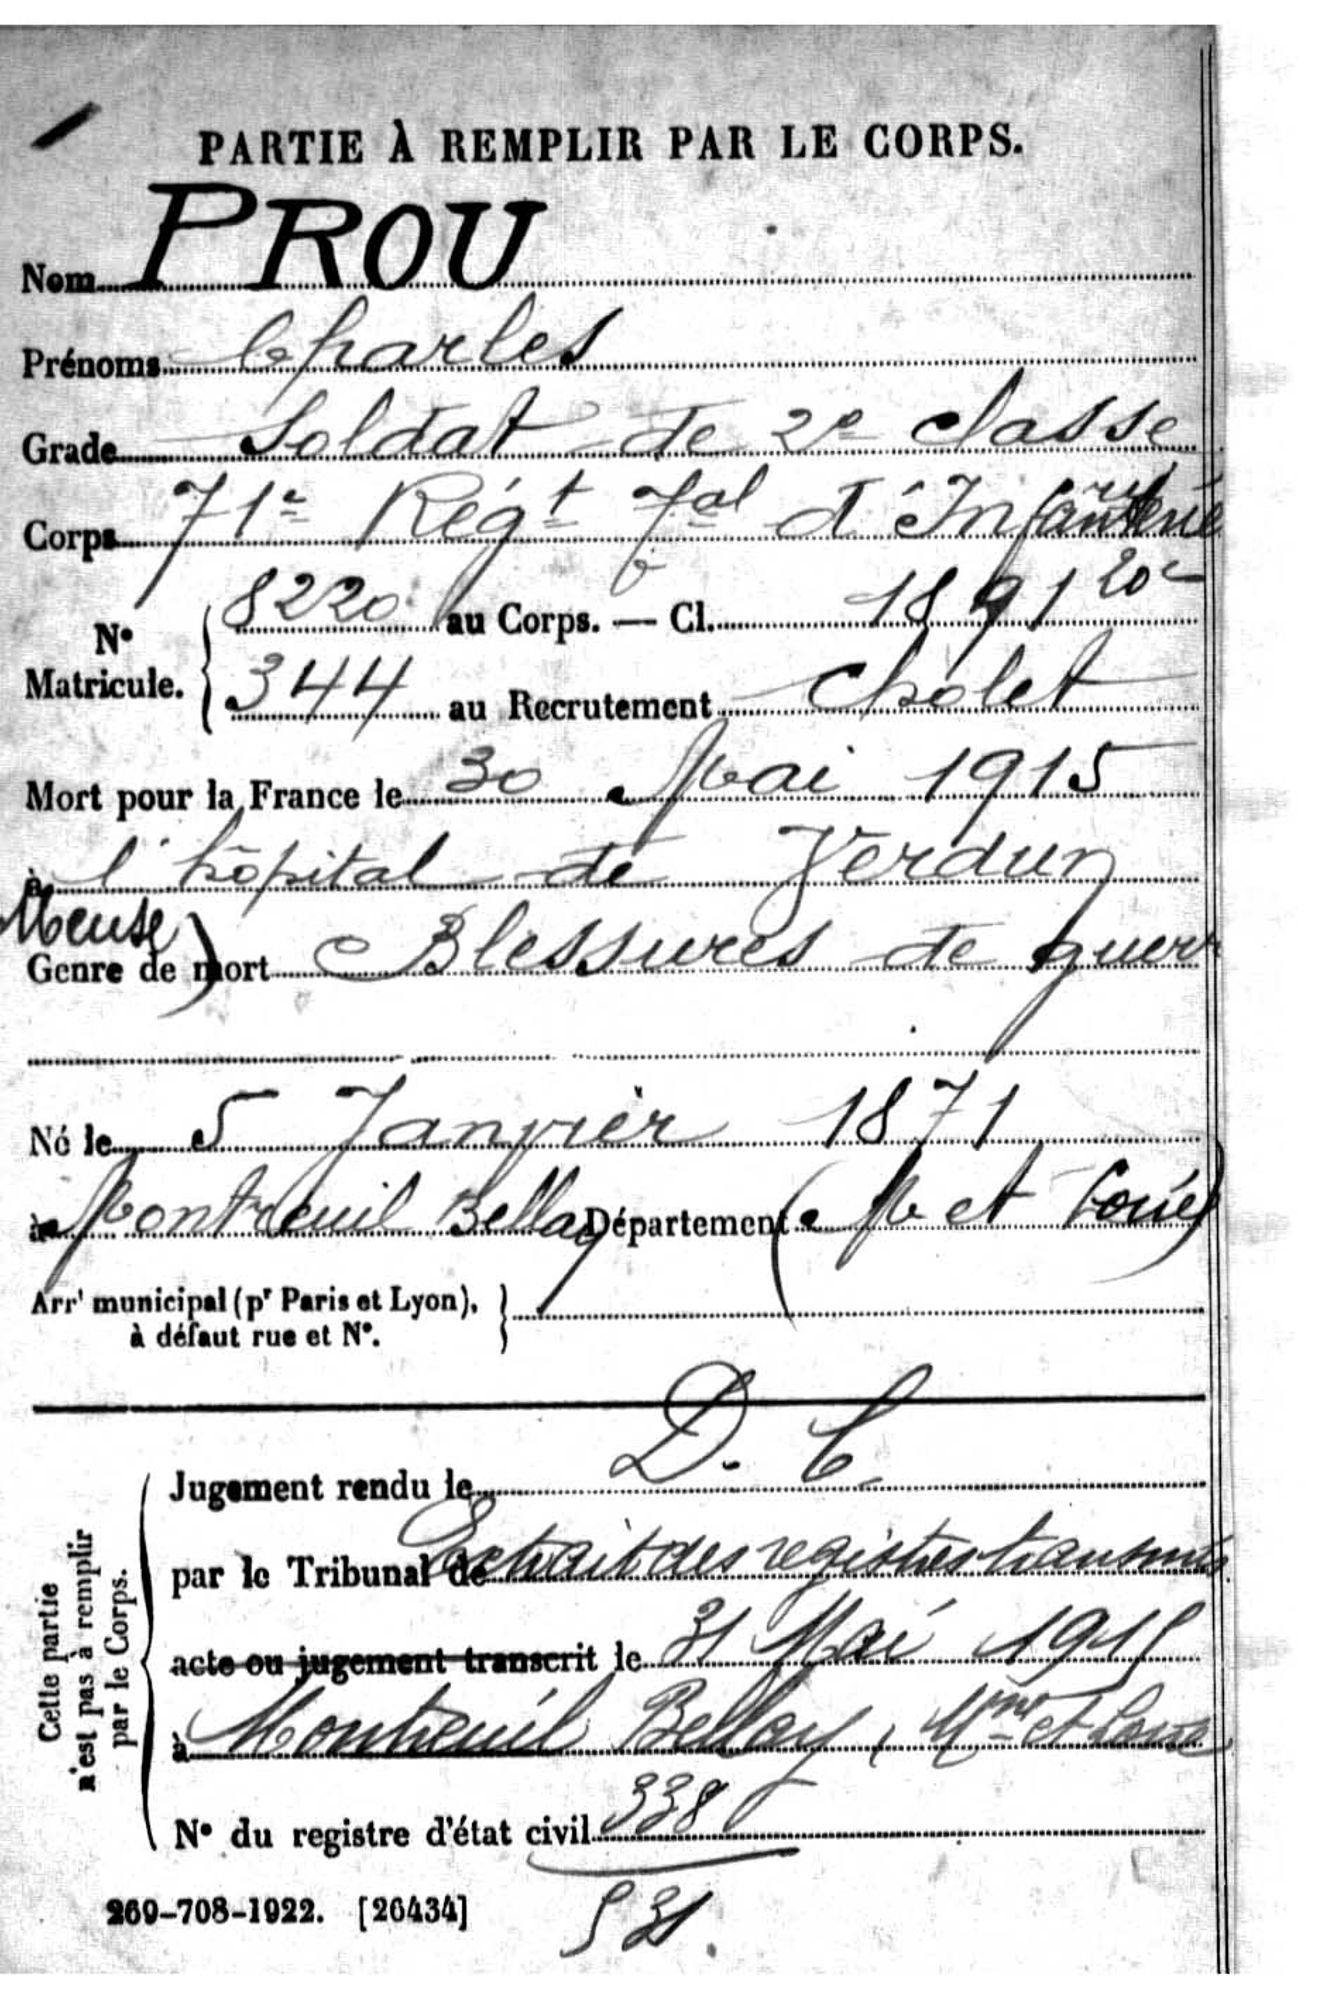 PARTIE À REMPLIR PAR LE CORPS.
Nom PROU
Prénoms Charles
Grade Soldat de 2e classe
Corps 71e Régt Tal d'Infanterie
N° Matricule. 8220 au Corps. — Cl. 1891 20e
344 au Recrutement Cholet
Mort pour la France le 30 Mai 1915
à l'hôpital de Verdun
Meuse)
Genre de mort Blessures de guerr
Né le 5 Janvier 1871
à Montreuil Bellay Département (M et Loire)
Arrt municipal (pr Paris et Lyon),
à défaut rue et N°.
D. C.
Cette partie n'est pas à remplir par le Corps.
Jugement rendu le
par le Tribunal de Extrait des registres transmis
acte ou jugement transcrit le 31 Mai 1915
à Montreuil Bellay, Mne et Loire
N° du registre d'état civil 338
269-708-1922. [26434]